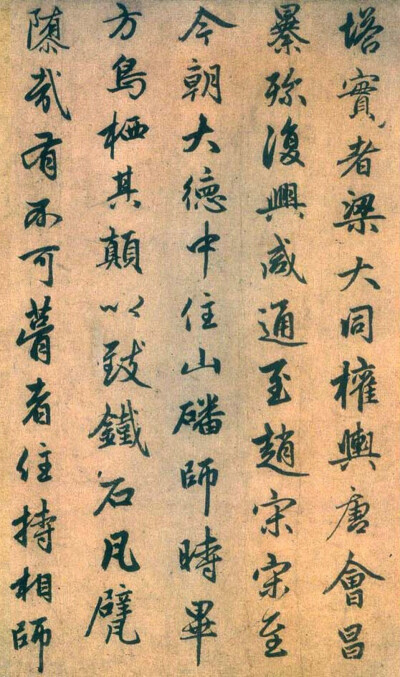 塔實者梁大同權輿唐會昌
㬥殄復興咸通至趙宋宋至
今朝大德中住山磻師時畢
方鳥栖其顛以致鐵石凡甓
隳哉有不可瞢者住持相師